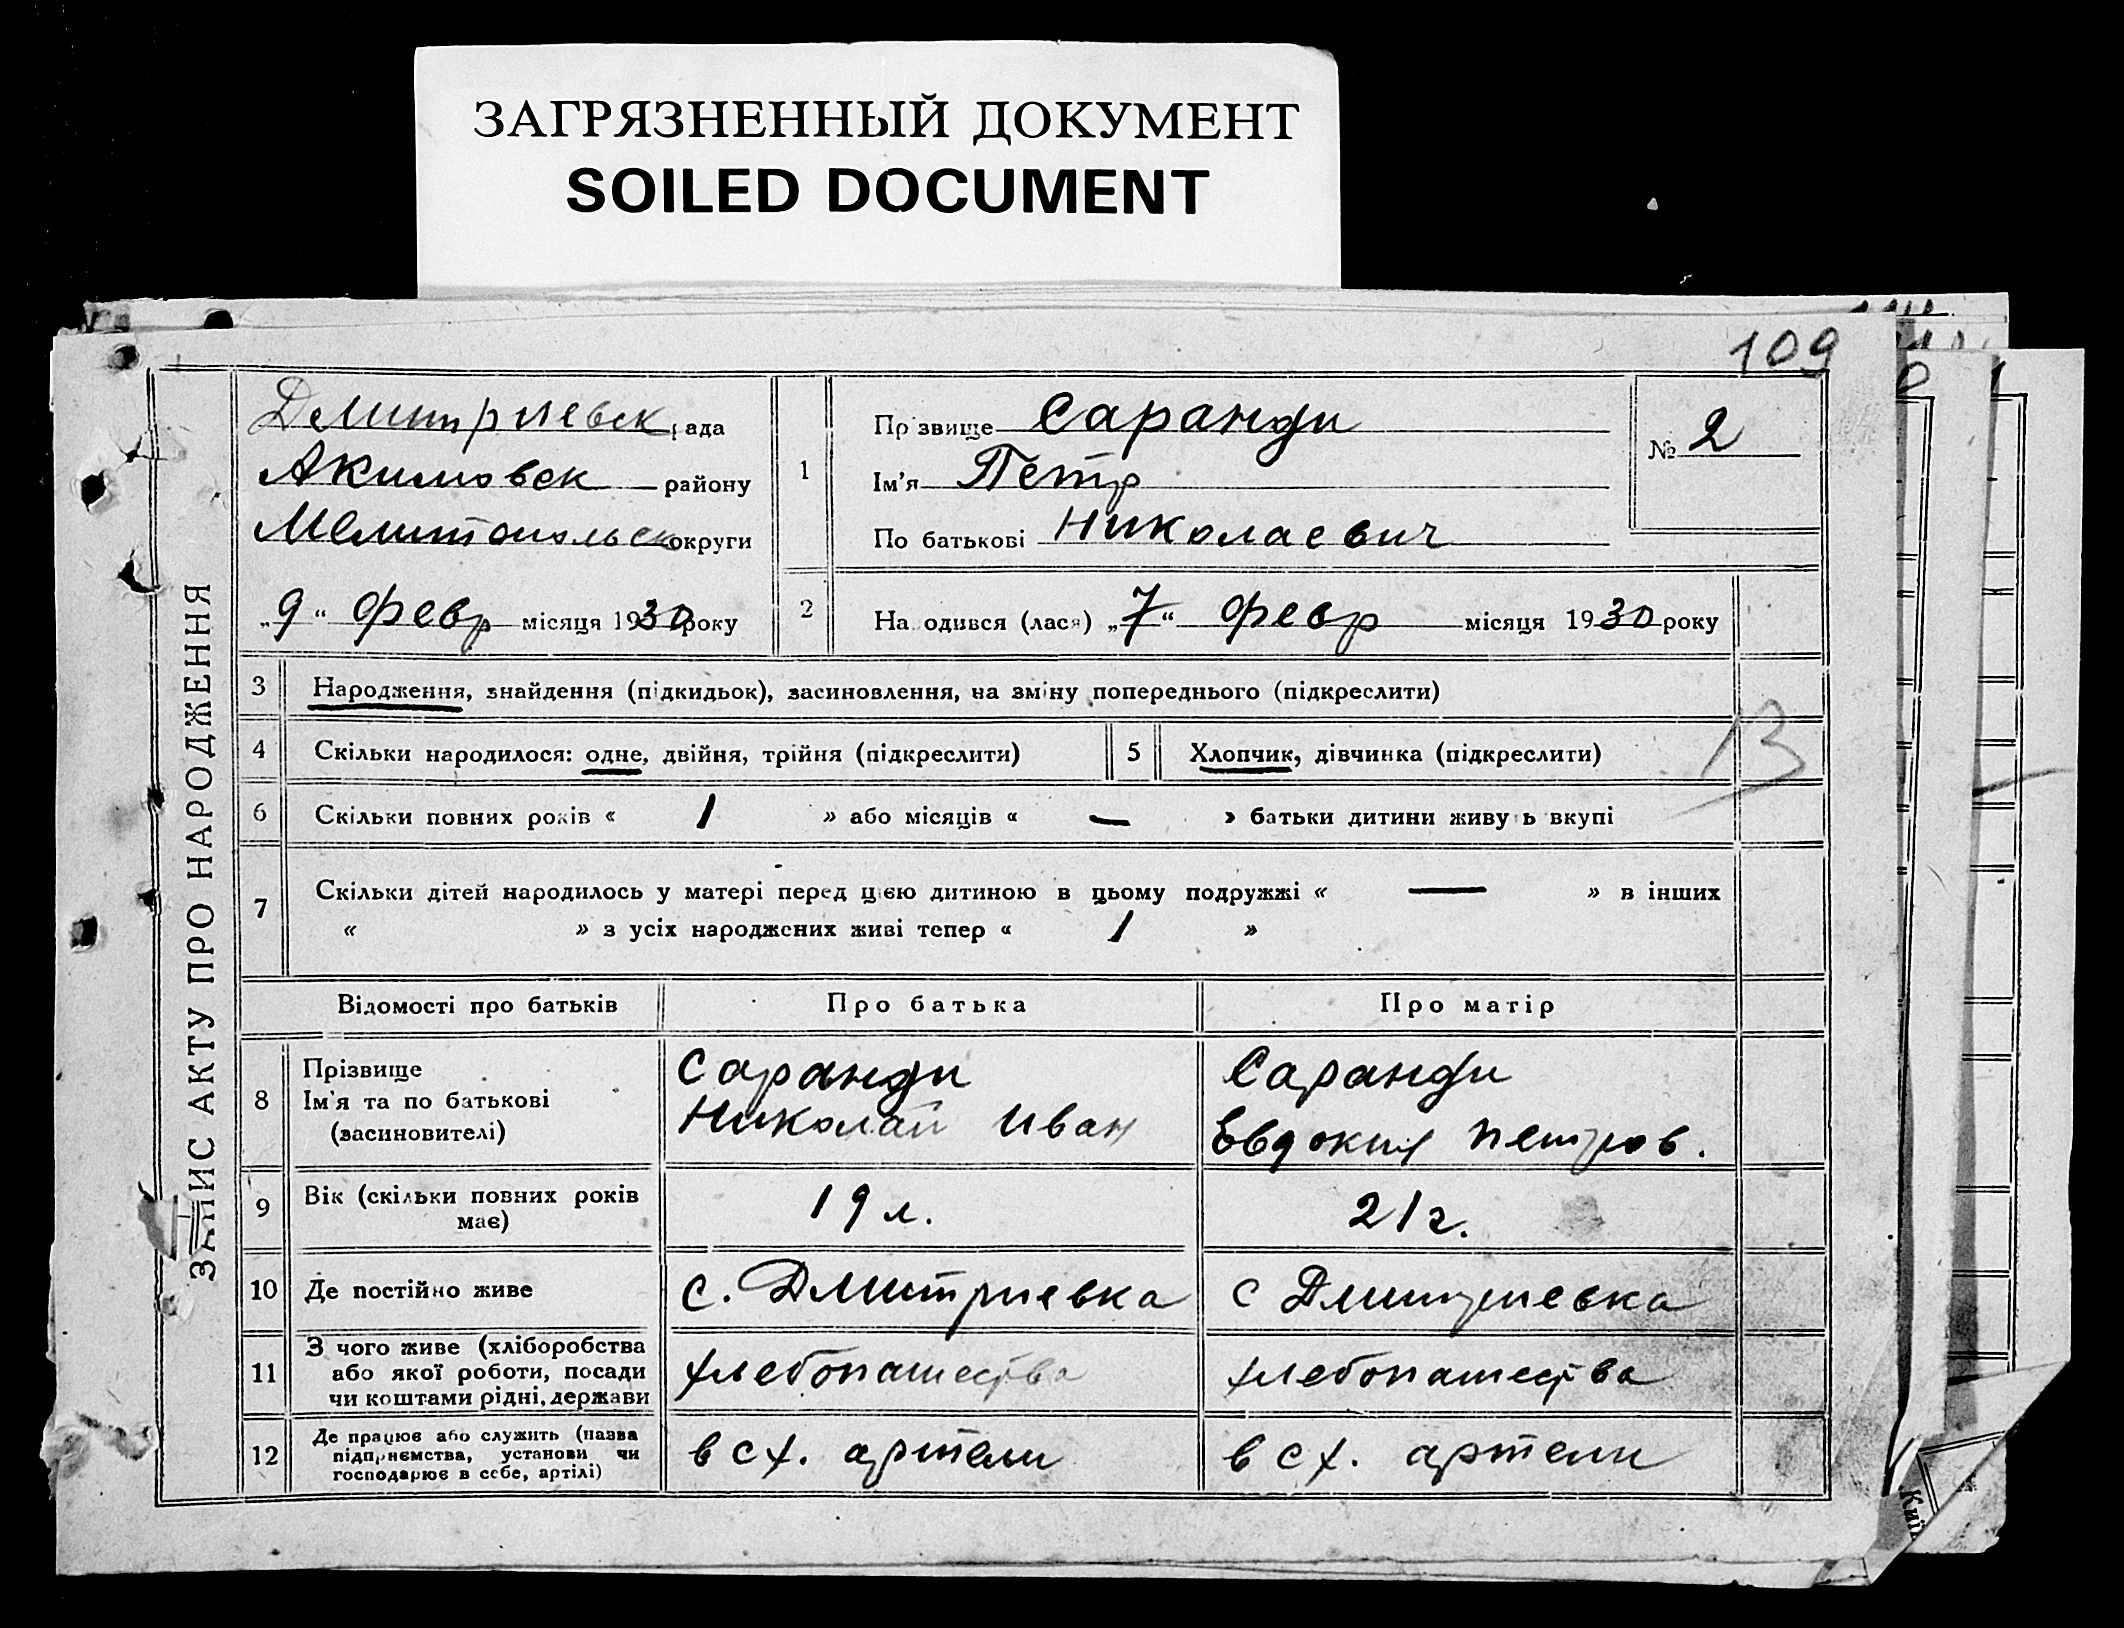 ЗАГРЯЗНЕННЫЙ ДОКУМЕНТ
SOILED DOCUMENT
109
ЗАПИС АКТУ ПРО НАРОДЖЕННЯ
Дмитриевск рада
Акимовск району
Мелитопольск округи
„9“ февр місяця 1930 року
1
Прізвище Саранди
Ім'я Петр
По батькові Николаевич
№ 2
2
На одився (лася) „7“ февр місяця 1930 року
3 Народження, знайдення (підкидьок), засиновлення, на зміну попереднього (підкреслити)
4 Скільки народилося: одне, двійня, трійня (підкреслити) 5 Хлопчик, дівчинка (підкреслити)
13
6 Скільки повних років « 1 » або місяців « — » батьки дитини живуть вкупі
7 Скільки дітей народилось у матері перед цією дитиною в цьому подружжі « — » в інших
« » з усіх народжених живі тепер « 1 »
Відомості про батьків Про батька Про матір
8 Прізвище
Ім'я та по батькові
(засиновителі)
Саранди
Николай Иван
Саранди
Евдокия Петров.
9 Вік (скільки повних років
має)
19 л. 21 г.
10 Де постійно живе с. Дмитриевка с Дмитриевка
11 З чого живе (хліборобства
або якої роботи, посади
чи коштами рідні, держави
хлебопашества хлебопашества
12 Де працює або служить (назва
підприємства, установи чи
господарює в себе, артілі)
в сх. артели в сх. артели
Київ